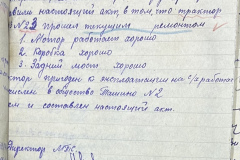 вили настоящий акт в том, что трактор
№ 23 прошел текущим ремонтом
1. Мотор работает хорошо
2. Коробка хорошо
3. Задний мост хорошо
тор пригоден к эксплоатации на с/х работах
в общество №2
ем и составлен настоящий акт.
Директор МТС